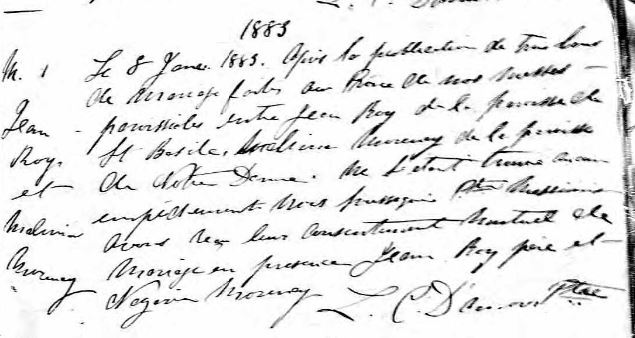 1883
M. 1 Le 8 Janv. 1883. Après la publication de trois bans
de mariage faites au Prône de nos messes
Jean paroissiales entre Jean Roy de la paroisse de
Roy. St Basile, Malvina Morency de la paroisse
et de Notre Dame. Ne s'étant trouvé aucun
Malvina empêchement Nous soussigné Ptre Missionnaire
avons reçu leur consentement mutuel de
Morency Mariage en presence Jean Roy père et
Morency L. C. D'amour Ptre